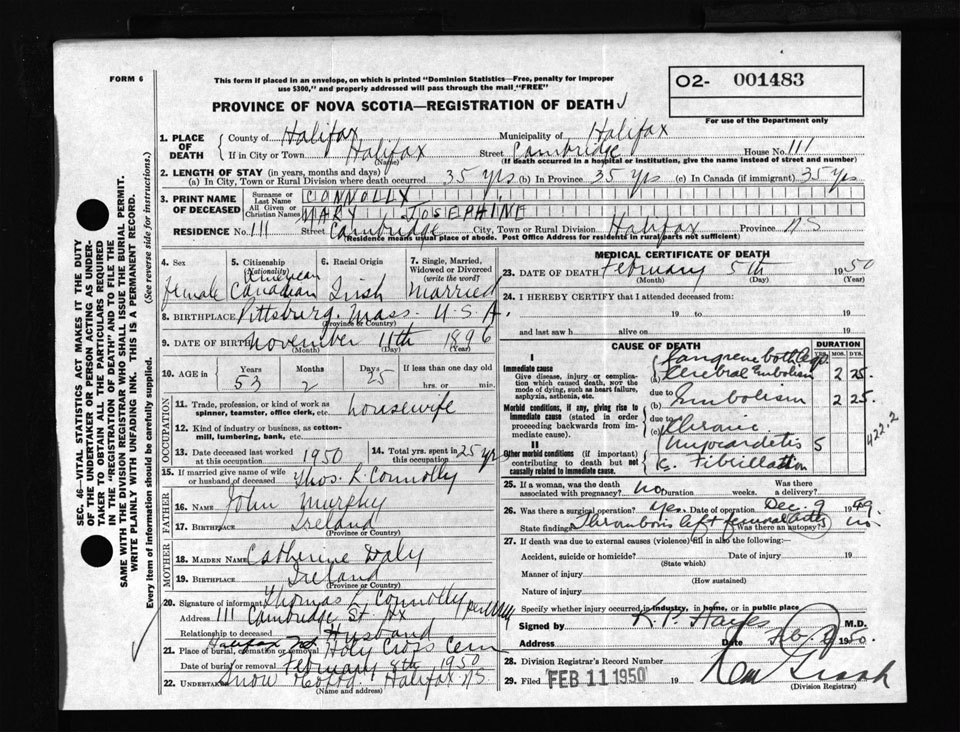 FORM 6
This form if placed in an envelope, on which is printed "Dominion Statistics—Free, penalty for improper
use $300," and properly addressed will pass through the mail "FREE"
O2- 001483
For use of the Department only
PROVINCE OF NOVA SCOTIA—REGISTRATION OF DEATH
1. PLACE OF DEATH County of Halifax Municipality of Halifax
If in City or Town Halifax Street Cambridge House No. 111
(Name) (If death occurred in a hospital or institution, give the name instead of street and number)
2. LENGTH OF STAY (in years, months and days)
(a) In City, Town or Rural Division where death occurred 35 yrs (b) In Province 35 yrs (c) In Canada (if immigrant) 35 yrs
3. PRINT NAME OF DECEASED Surname or Last Name CONNOLLY
All Given or Christian Names MARY JOSEPHINE
RESIDENCE No. 111 Street Cambridge City, Town or Rural Division Halifax Province NS
(Residence means usual place of abode. Post Office Address for residents in rural parts not sufficient)
SEC. 46—VITAL STATISTICS ACT MAKES IT THE DUTY
OF THE UNDERTAKER OR PERSON ACTING AS UNDER-
TAKER TO OBTAIN ALL THE PARTICULARS REQUIRED
IN THE "REGISTRATION OF DEATH" AND TO FILE THE
SAME WITH THE DIVISION REGISTRAR WHO SHALL ISSUE THE BURIAL PERMIT.
WRITE PLAINLY WITH UNFADING INK. THIS IS A PERMANENT RECORD.
Every item of information should be carefully supplied. (See reverse side for instructions.)
4. Sex female
5. Citizenship (Nationality) American Canadian
6. Racial Origin Irish
7. Single, Married, Widowed or Divorced (write the word) Married
8. BIRTHPLACE Pittsburg, Mass. U.S.A.
(Province or Country)
9. DATE OF BIRTH November 11th 1896
(Month) (Day) (Year)
10. AGE in Years 53 Months 2 Days 25 If less than one day old hrs. or min.
OCCUPATION
11. Trade, profession or kind of work as spinner, teamster, office clerk, etc. housewife
12. Kind of industry or business, as cotton-mill, lumbering, bank, etc.
13. Date deceased last worked at this occupation 1950
14. Total yrs. spent in this occupation 25 yrs
15. If married give name of wife or husband of deceased Thos. L. Connolly
FATHER
16. Name John Murphy
17. Birthplace Ireland
(Province or Country)
MOTHER
18. Maiden Name Catherine Daly
19. Birthplace Ireland
(Province or Country)
20. Signature of informant Thomas L Connolly
Address 111 Cambridge St Hx
Relationship to deceased Husband
21. Place of burial, cremation or removal Halifax Holy Cross Cem
Date of burial or removal February 8th 1950
22. Undertaker Snow Halifax NS
(Name and address)
MEDICAL CERTIFICATE OF DEATH
23. DATE OF DEATH February 5th 1950
(Month) (Day) (Year)
24. I HEREBY CERTIFY that I attended deceased from
19 to 19
and last saw h alive on 19
CAUSE OF DEATH
DURATION
YRS. MOS. DYS.
I
Immediate cause
Give disease, injury or complication which caused death, NOT the mode of dying, such as heart failure, asphyxia, asthenia, etc.
(a) Gangrene both legs
Cerebral Embolism 2 25.
due to
(b) Embolism 2 25.
Morbid conditions, if any, giving rise to immediate cause (stated in order proceeding backwards from immediate cause).
due to
(c) Chronic
Myocarditis 5
422.2
II
Other morbid conditions (if important) contributing to death but not causally related to immediate cause.
Fibrillation
25. If a woman, was the death associated with pregnancy? no Duration weeks. Was there a delivery?
26. Was there a surgical operation? Yes Date of operation Dec. 9 1949
State findings Thrombosis left femoral Was there an autopsy? no.
27. If death was due to external causes (violence) fill in also the following:—
Accident, suicide or homicide? Date of injury 19
(State which)
Manner of injury
(How sustained)
Nature of injury
Specify whether injury occurred in industry, in home, or in public place
Signed by K.P. Hayes M.D.
Address Date Feb. 1950.
28. Division Registrar's Record Number
29. Filed FEB 11 1950 19
(Division Registrar)